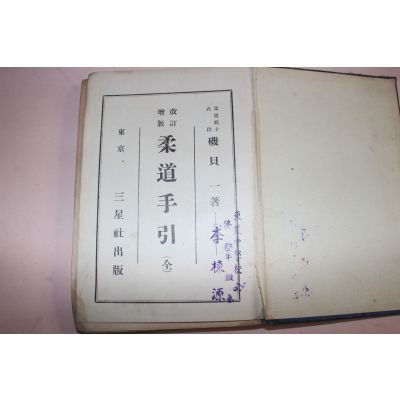 柔道範士
八段
磯貝一著
改訂
増版
柔道手引(全)
東京・三星社出版
李棟源